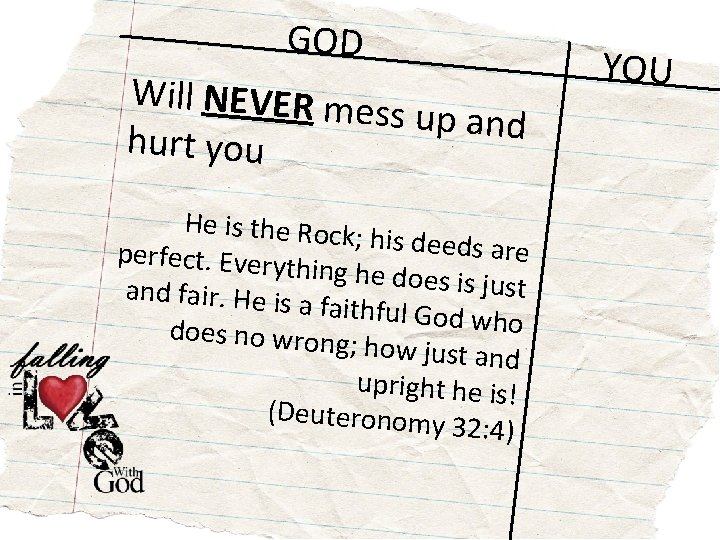 GOD
YOU
Will NEVER mess up and
hurt you
He is the Rock; his deeds are
perfect. Everything he does is just
and fair. He is a faithful God who
does no wrong; how just and
upright he is!
(Deuteronomy 32:4)
falling
in
LOVE
With
God